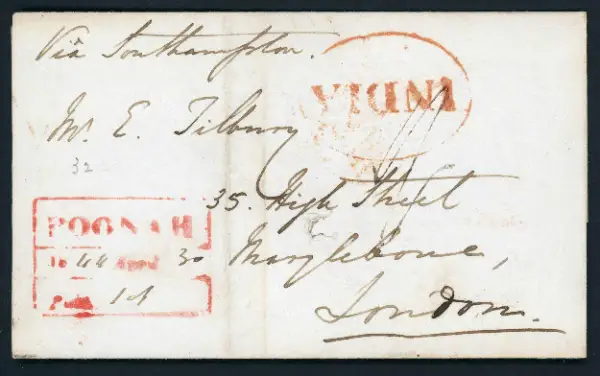 Via Southampton.
INDIA
Mr. E. Tilbury
32
35. High Street
Marylebone,
London.
POONAH
1844 April 30
Paid